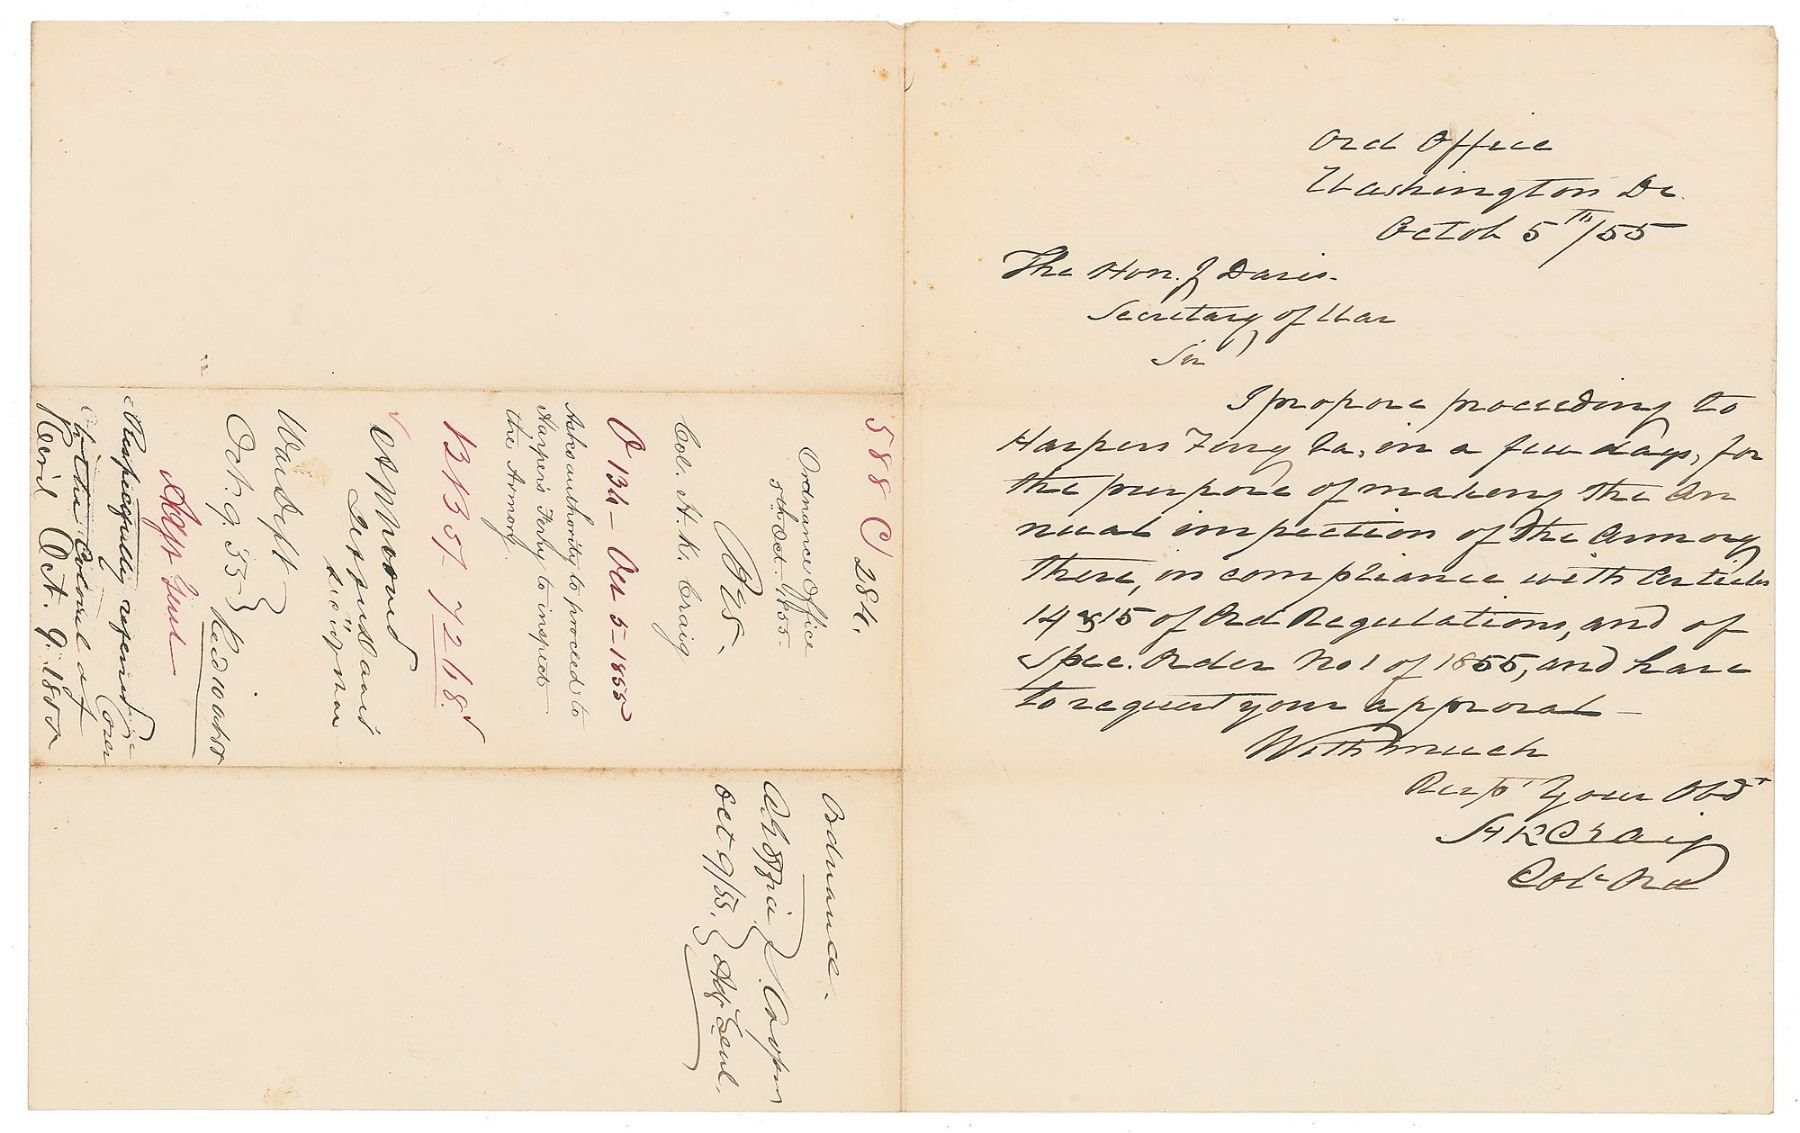 Ord Office
Washington Dc.
Octob 5th/55
The Hon. J Davis.
Secretary of War
Sir
I propose proceeding to
Harpers Ferry Va, in a few days, for
the purpose of making the An
nual inspection of the Armory
there, in compliance with Articles
14 & 15 of Ord Regulations, and of
Spec. Order No 1 of 1855, and have
to request your approval
With much
Resp Your Obdt
H K Craig
Col. Ord
588 C 284.
Ordnance Office
5th Oct 1855
Col. H. K. Craig
O 134 - Oct 5 - 1855
Asks authority to proceed to
Harper's Ferry to inspect
the Armory
Approved
Jefferson Davis
Sec of War
War Dept
Oct. 9. 55 } Recd 10 Oct
Adjt Genl
Respectfully referred
to the Colonel of
Recd Oct. 9. 1855
Ordnance.
S. Cooper
Oct 9/55. } Adj Genl.